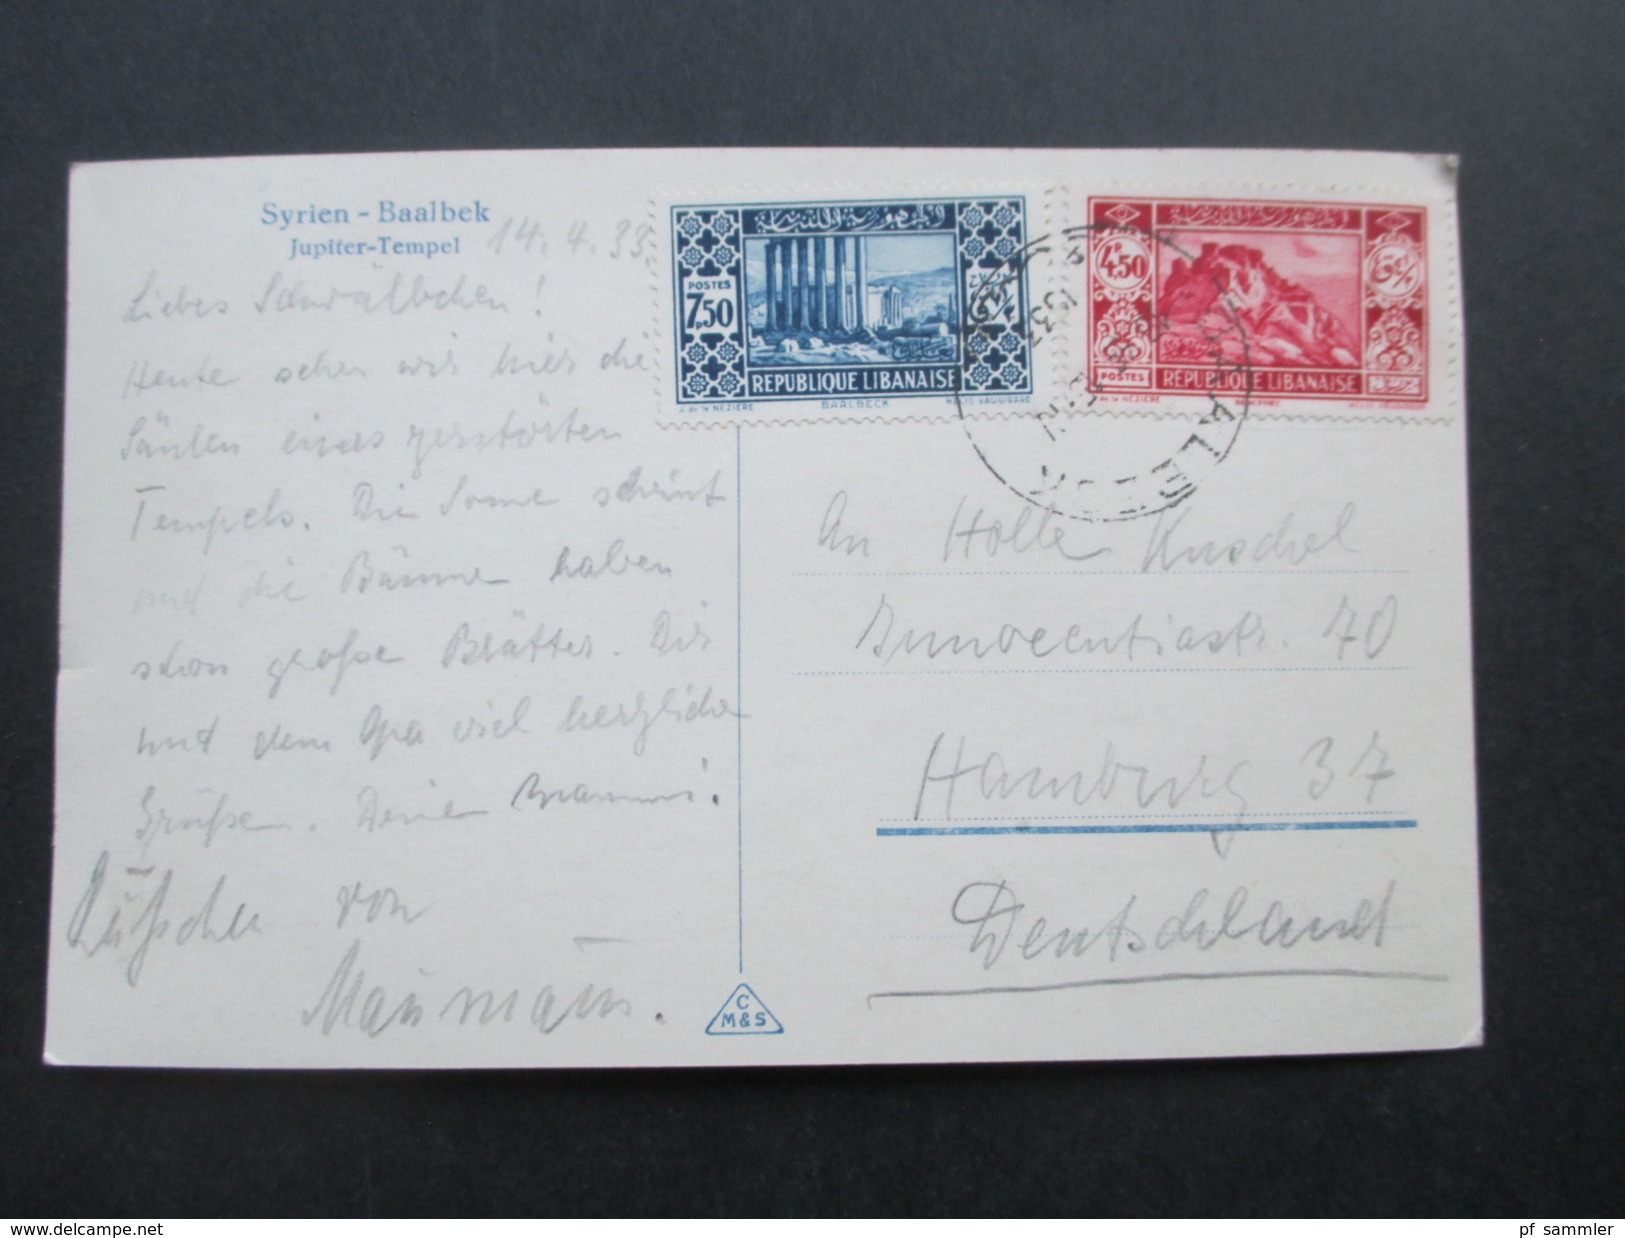 Syrien - Baalbek
Jupiter-Tempel
14.4.33.
Liebes Schwälbchen!
Heute sehen wir hier die
Säulen eines zerstörten
Tempels. Die Sonne scheint
und die Bäume haben
schon große Blätter. Dir
und dem Opa viel herzliche
Grüße. Deine Mammi.
von
POSTES
7,50
REPUBLIQUE LIBANAISE
J. de la NEZIERE BAALBECK HELIO VAUGIRARD
4,50
POSTES
REPUBLIQUE LIBANAISE
J. de la NEZIERE BEAUFORT HELIO VAUGIRARD
BAALBECK
An Holle Kuschel
Innocentiastr. 70
Hamburg 37
Deutschland
C
M&S
www.delcampe.net
pf sammler